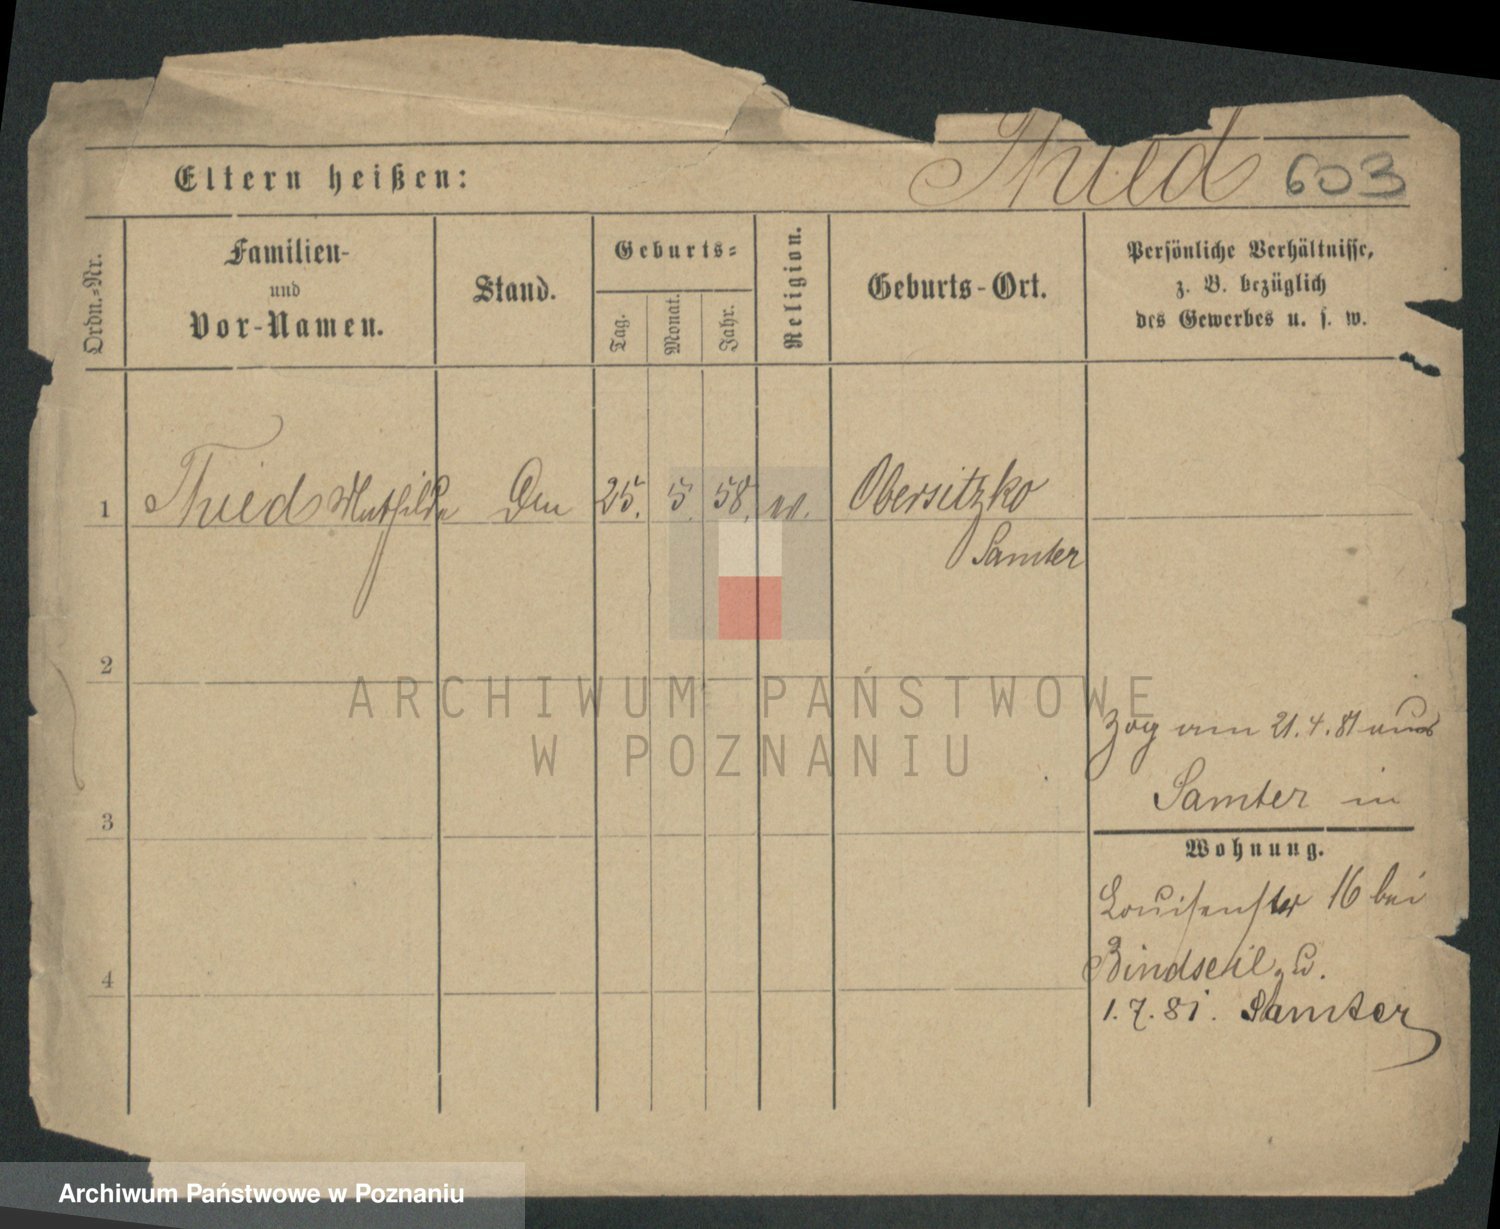 Eltern heißen: Thied 603
Ordn.-Nr.
Familien-
und
Vor-Namen.
Stand.
Geburts-
Tag.
Monat.
Jahr.
Religion.
Geburts-Ort.
Persönliche Verhältnisse,
z. B. bezüglich
des Gewerbes u. s. w.
1 Thied Mathilde 25. 5. 58. Obersitzko
Samter
2
ARCHIWUM PAŃSTWOWE
W POZNANIU
zog am 21.4.81 aus
Samter in
3
Wohnung.
Louisenstr 16 bei
Bindseil
4
1.7.81. Samter
Archiwum Państwowe w Poznaniu